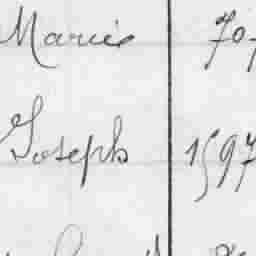 Marie 70
Joseph 1597